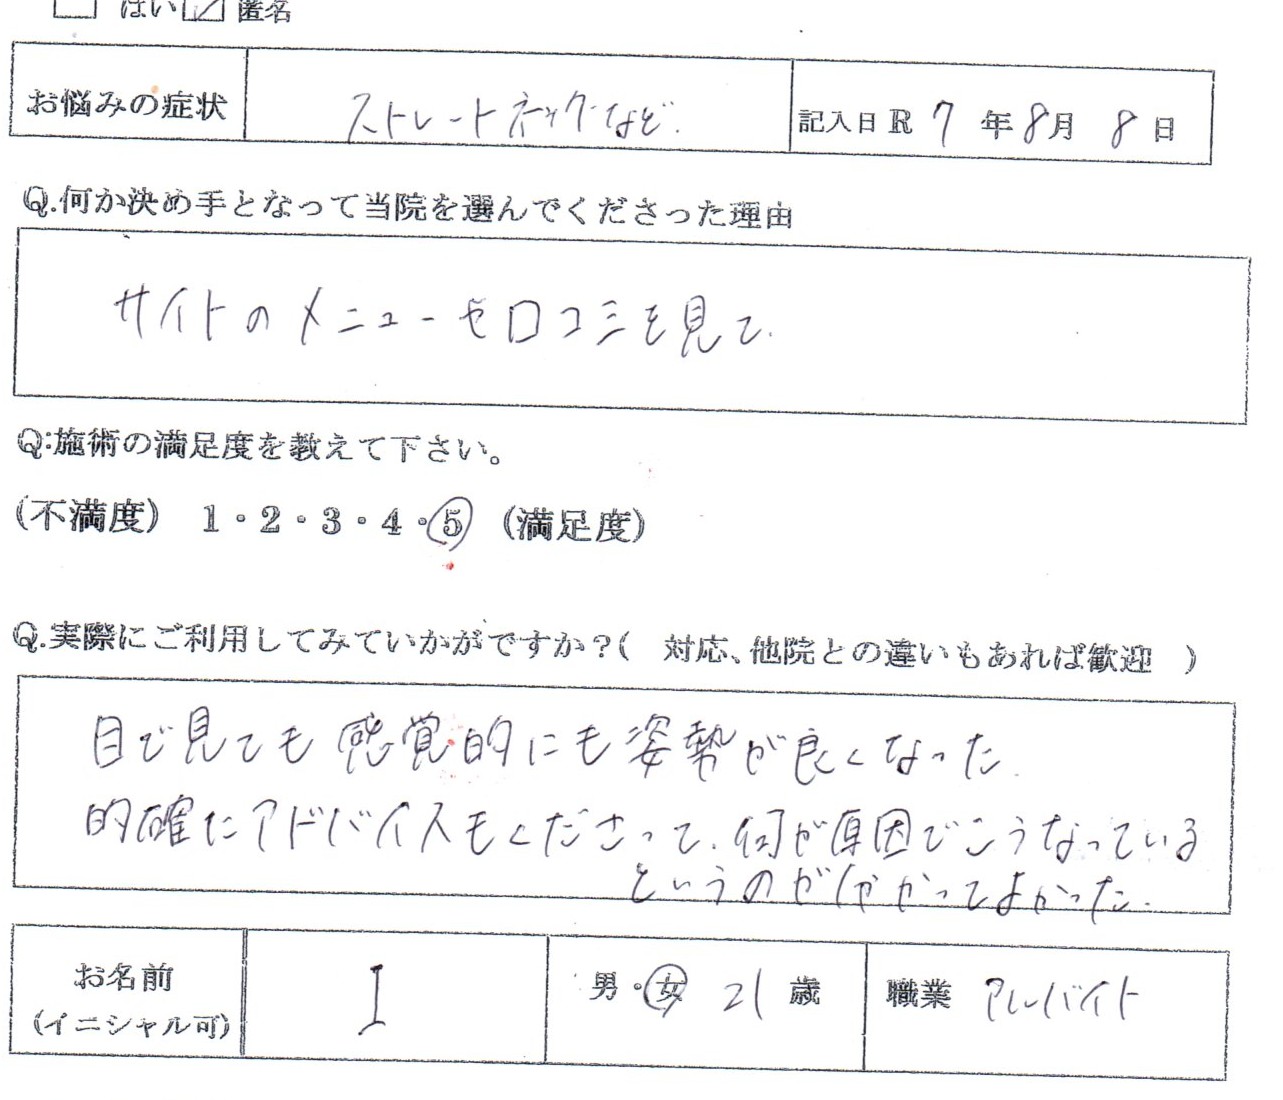 はい 匿名
お悩みの症状 ストレートネックなど. 記入日 R 7 年 8 月 8 日
Q.何か決め手となって当院を選んでくださった理由
サイトのメニューや口コミを見て.
Q:施術の満足度を教えて下さい。
(不満度) 1・2・3・4・5 (満足度)
Q.実際にご利用してみていかがですか?( 対応、他院との違いもあれば歓迎 )
目で見ても感覚的にも姿勢が良くなった.
的確にアドバイスもくださって、何が原因でこうなっている
というのが分かってよかった.
お名前 I 男・女 21 歳 職業 アルバイト
(イニシャル可)